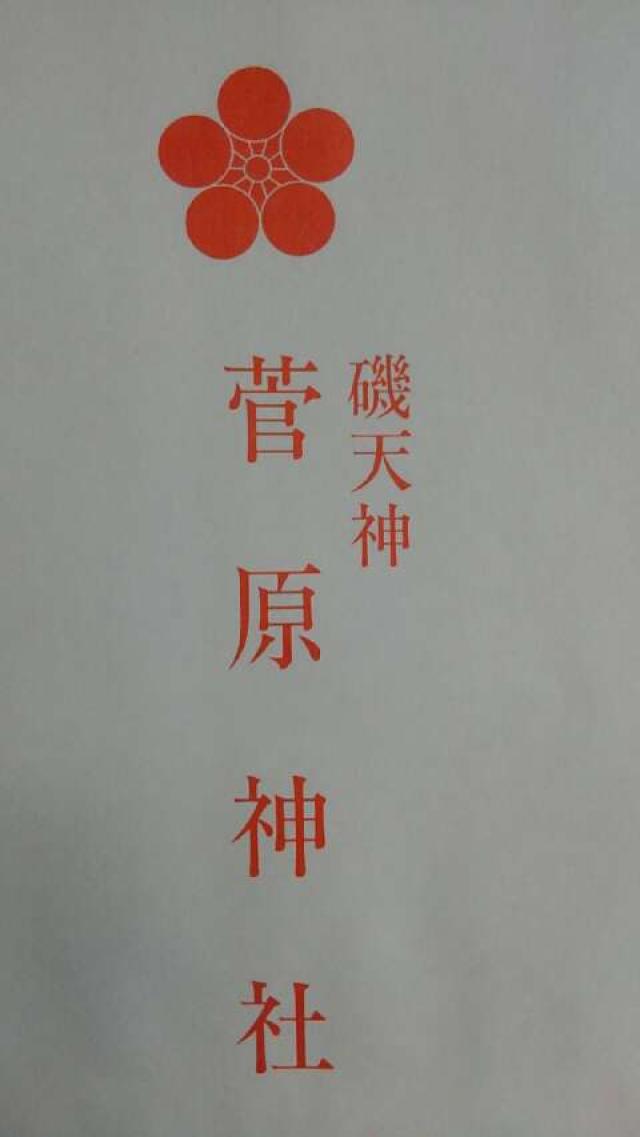 磯天神
菅原神社